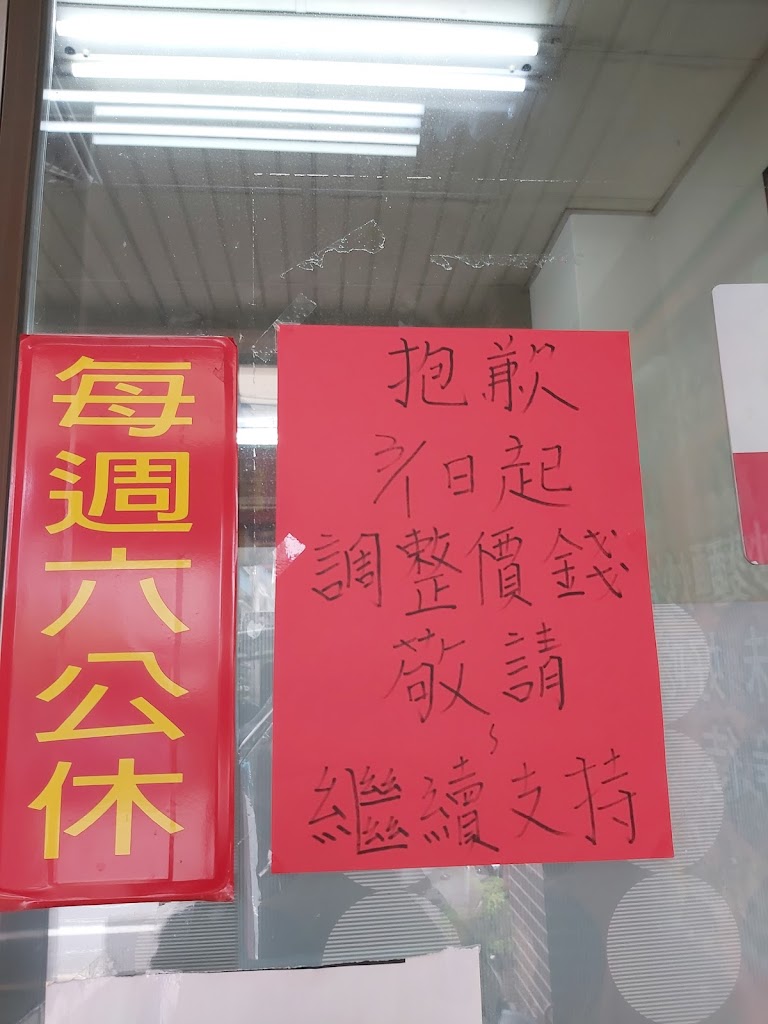 每週六公休
抱歉
3/1日起
調整價錢
敬請
~
繼續支持